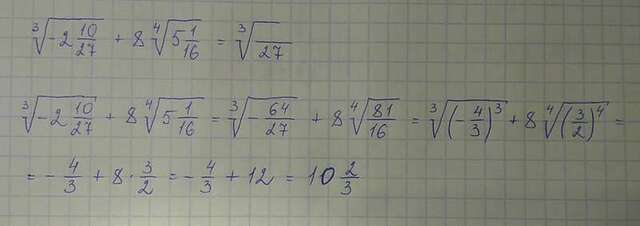 ∛(-2 10/27) + 8 ∜(5 1/16) = ∛( /27)
∛(-2 10/27) + 8 ∜(5 1/16) = ∛(-64/27) + 8 ∜(81/16) = ∛((-4/3)^3) + 8 ∜((3/2)^4) =
= -4/3 + 8 · 3/2 = -4/3 + 12 = 10 2/3